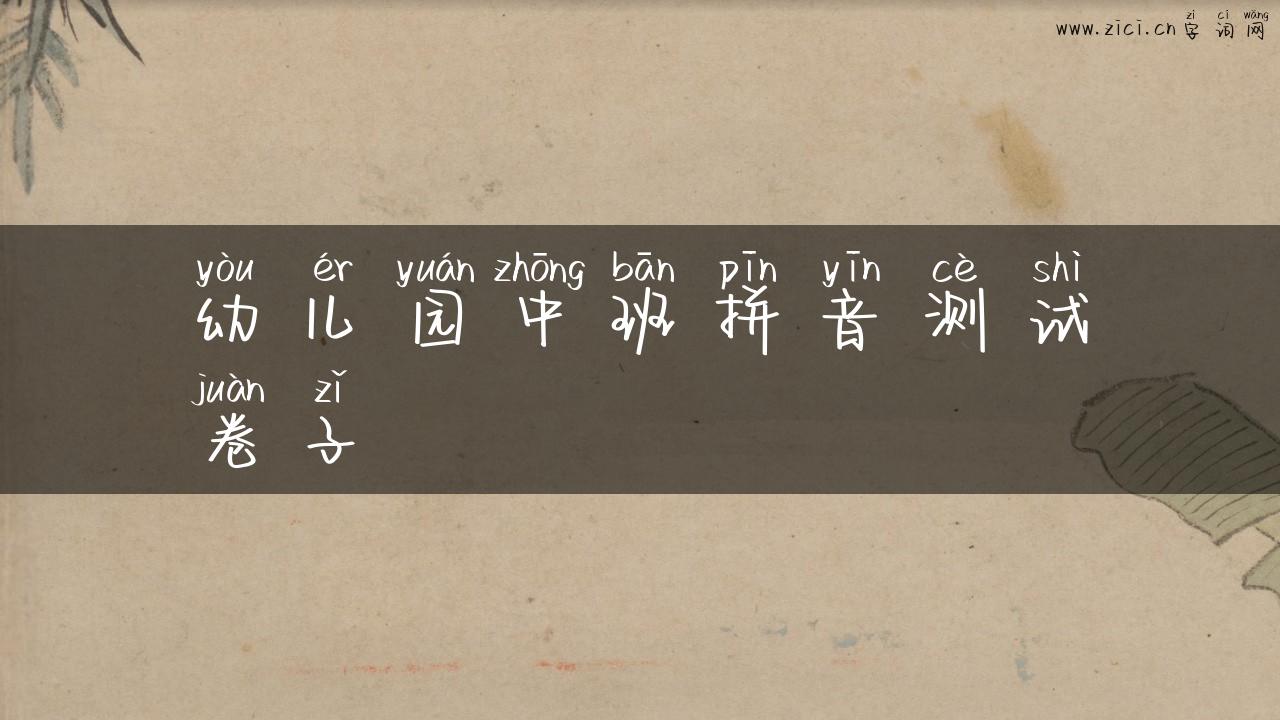 zì cí wǎng
www.zici.cn 字词网
yòu ér yuán zhōng bān pīn yīn cè shì
幼儿园中班拼音测试
juàn zǐ
卷子